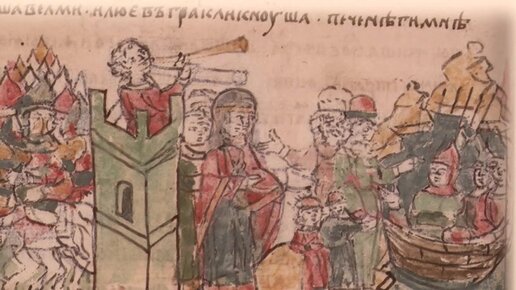 шавелми · и люе въ грае клискноуша · печенѣги мнѣ